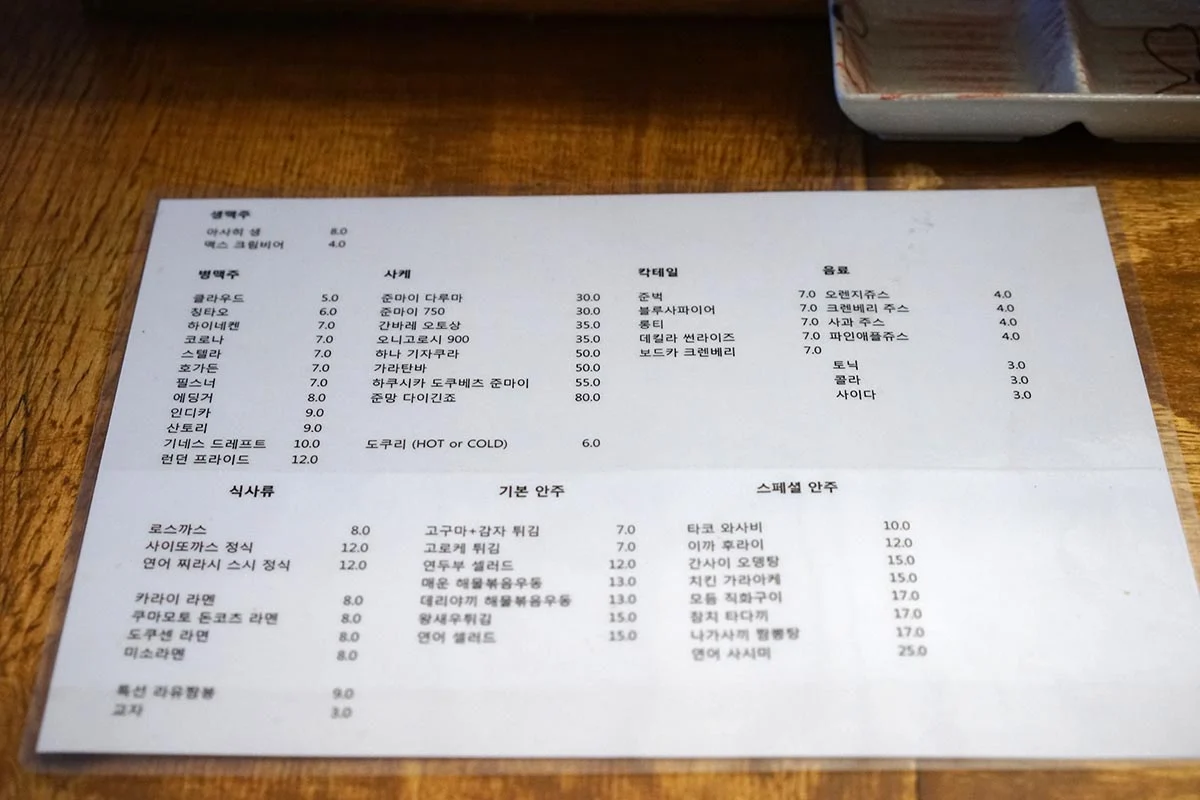 생맥주
아사히 생 8.0
맥스 크림비어 4.0
병맥주
클라우드 5.0
칭타오 6.0
하이네켄 7.0
코로나 7.0
스텔라 7.0
호가든 7.0
필스너 7.0
에딩거 8.0
인디카 9.0
산토리 9.0
기네스 드레프트 10.0
런던 프라이드 12.0
사케
준마이 다루마 30.0
준마이 750 30.0
간바레 오토상 35.0
오니고로시 900 35.0
하나 기자쿠라 50.0
가라탄바 50.0
하쿠시카 도쿠베츠 준마이 55.0
준망 다이긴죠 80.0
도쿠리 (HOT or COLD) 6.0
칵테일
준벅 7.0
블루사파이어 7.0
롱티 7.0
데킬라 썬라이즈 7.0
보드카 크렌베리 7.0
음료
오렌지쥬스 4.0
크렌베리 주스 4.0
사과 주스 4.0
파인애플쥬스 4.0
토닉 3.0
콜라 3.0
사이다 3.0
식사류
로스까스 8.0
사이또까스 정식 12.0
연어 찌라시 스시 정식 12.0
카라이 라멘 8.0
쿠마모토 돈코츠 라멘 8.0
도쿠센 라면 8.0
미소라멘 8.0
특선 라유짬뽕 9.0
교자 3.0
기본 안주
고구마+감자 튀김 7.0
고로케 튀김 7.0
연두부 셀러드 12.0
매운 해물볶음우동 13.0
데리야끼 해물볶음우동 13.0
왕새우튀김 15.0
연어 셀러드 15.0
스페셜 안주
타코 와사비 10.0
이까 후라이 12.0
간사이 오뎅탕 15.0
치킨 가라아케 15.0
모듬 직화구이 17.0
참치 타다끼 17.0
나가사끼 짬뽕탕 17.0
연어 사시미 25.0